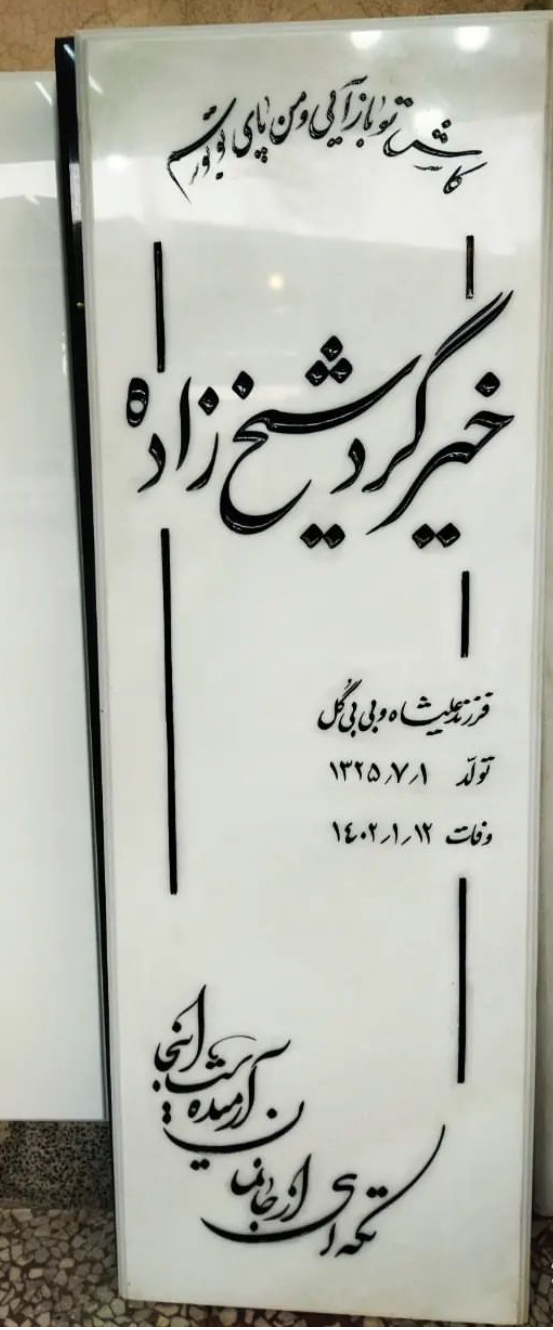 کاش تو باز آیی و من پای تو بوسم
خیر گرد شیخ زاده
فرزند علیشاه و بی بی گل
تولد ۱۳۲۵٫۷٫۱
وفات ۱۴۰۲٫۱٫۱۲
تکه ای از جانمان
آرمیده است اینجا